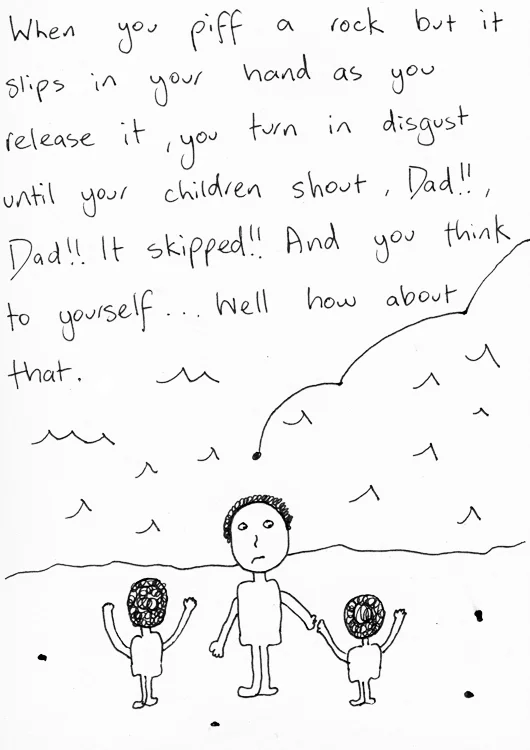 When you piff a rock but it
slips in your hand as you
release it, you turn in disgust
until your children shout, Dad!!,
Dad!! It skipped!! And you think
to yourself... Well how about
that.